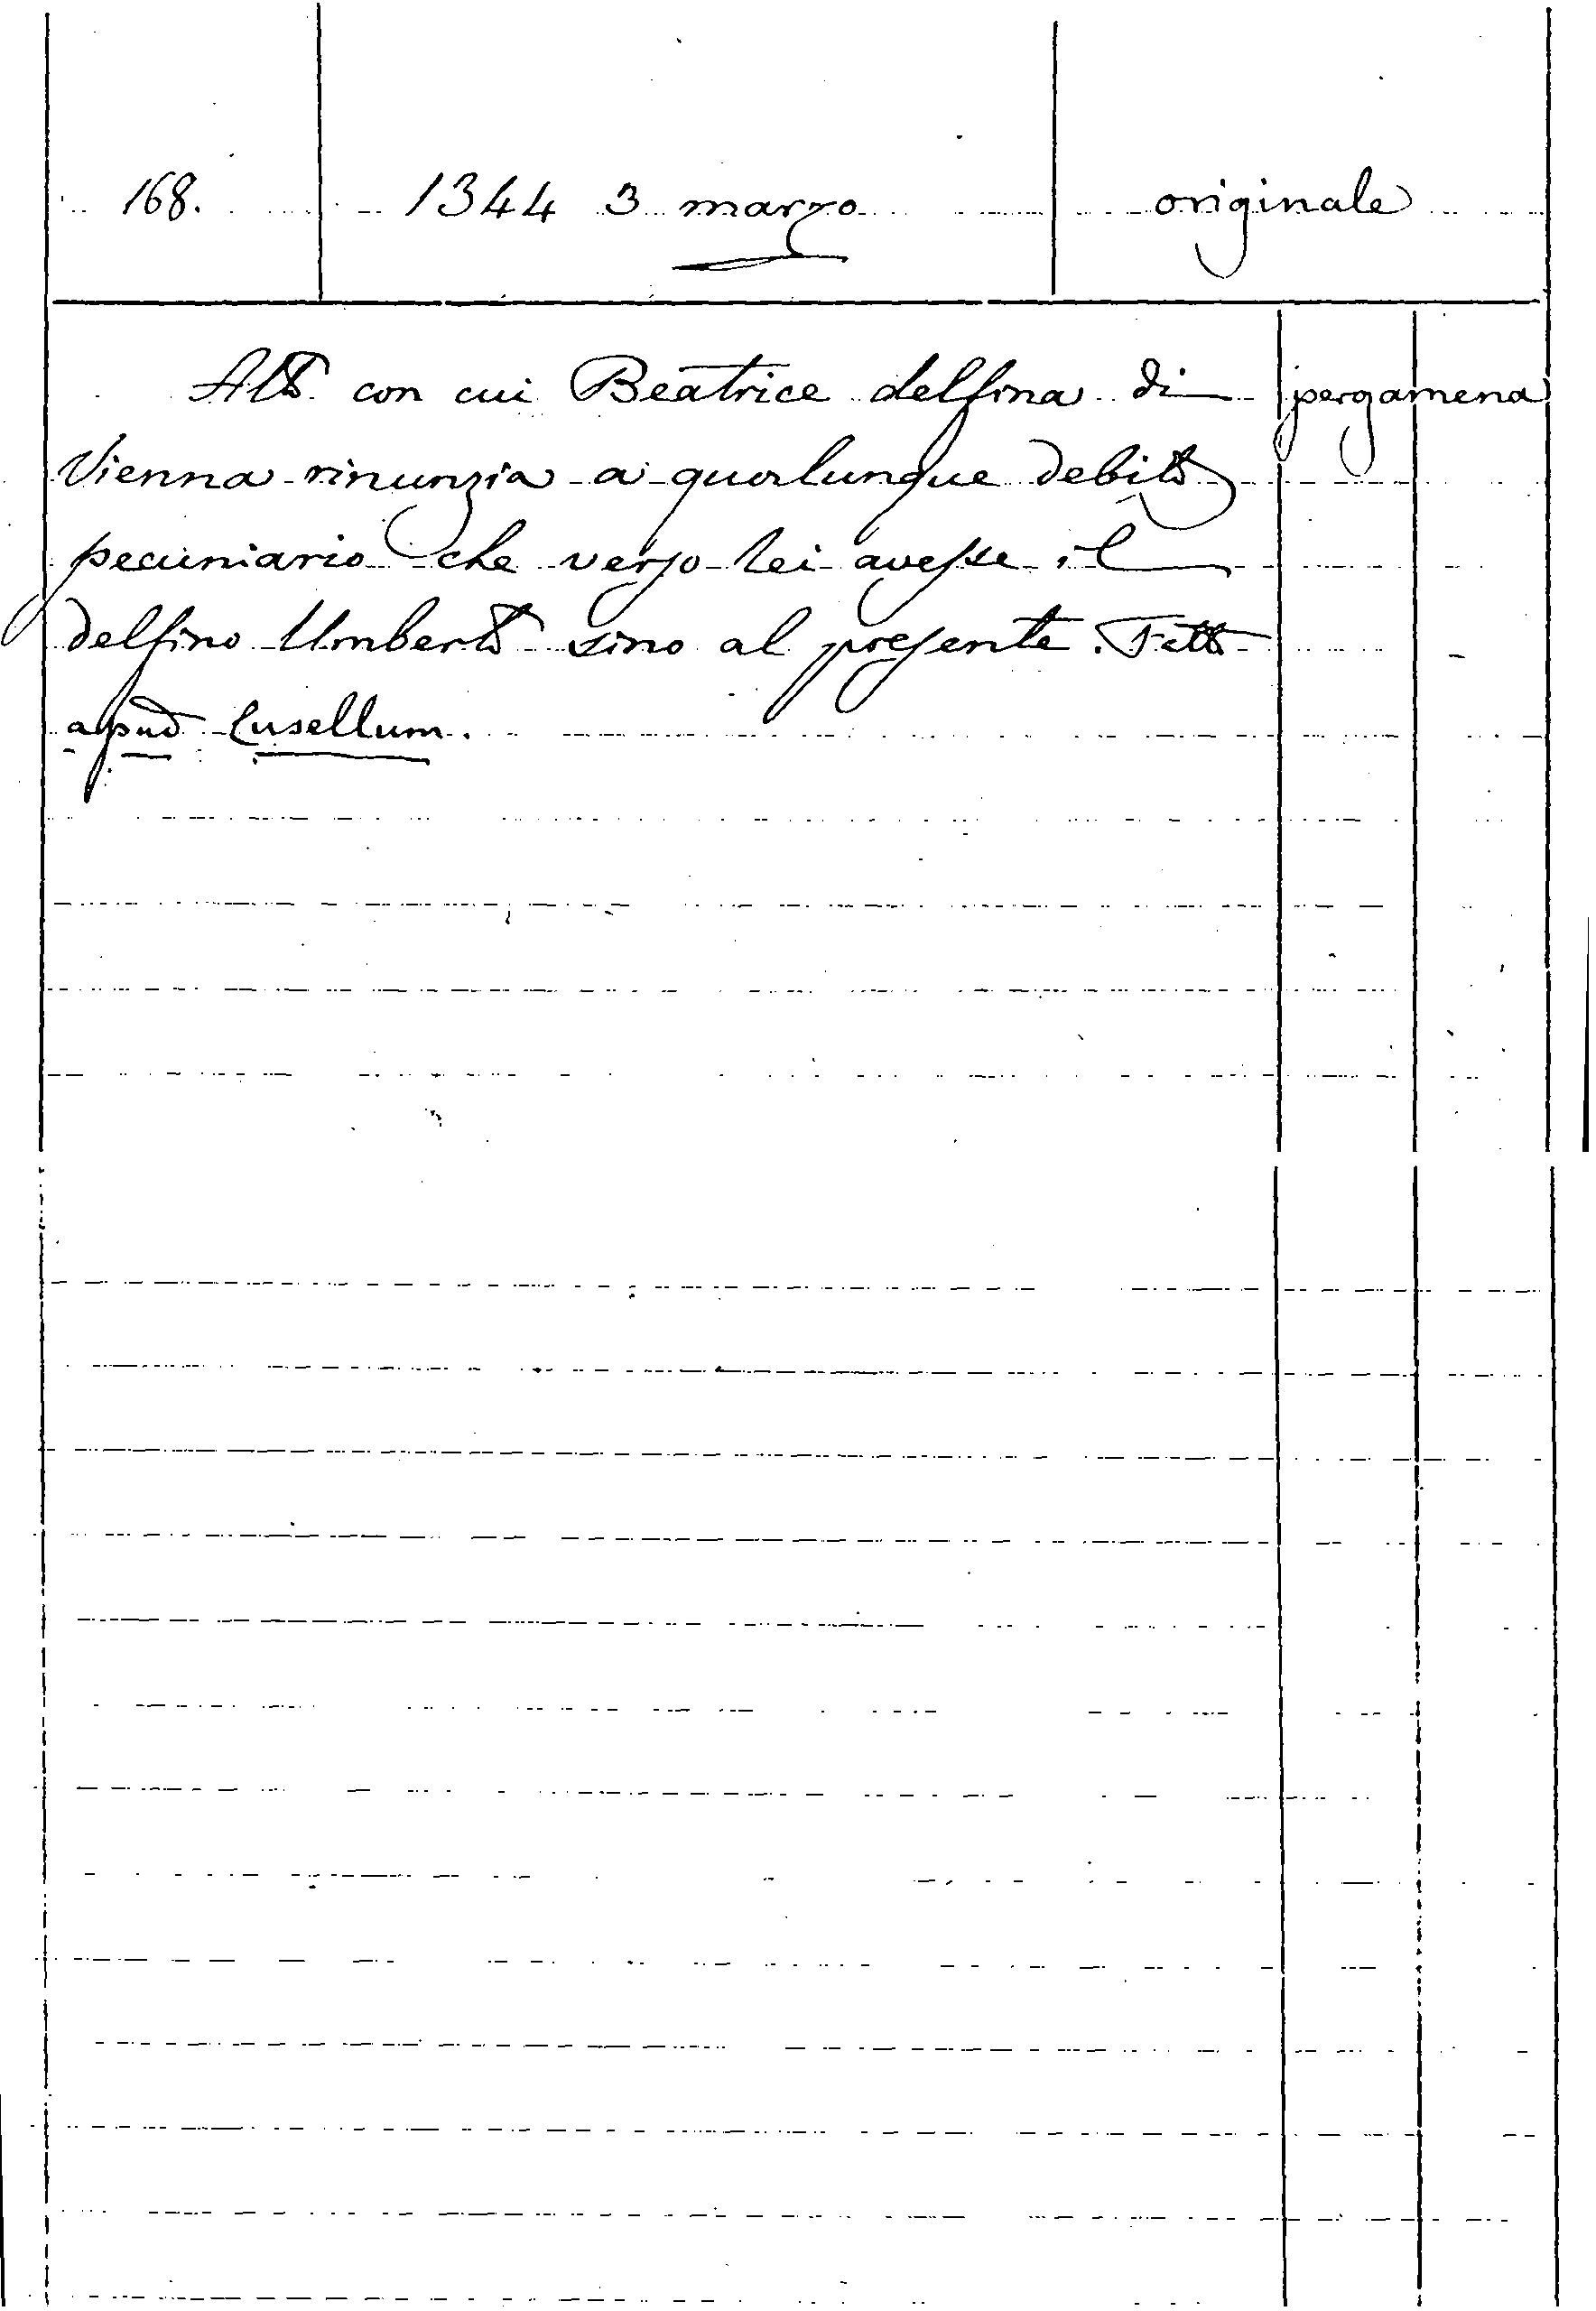 168. 1344 3 marzo originale
Atto con cui Beatrice delfina di pergamena
Vienna rinunzia a qualunque debito
pecuniario che verso lei avesse il
delfino Umberto sino al presente. Fatto
apud Cusellum.